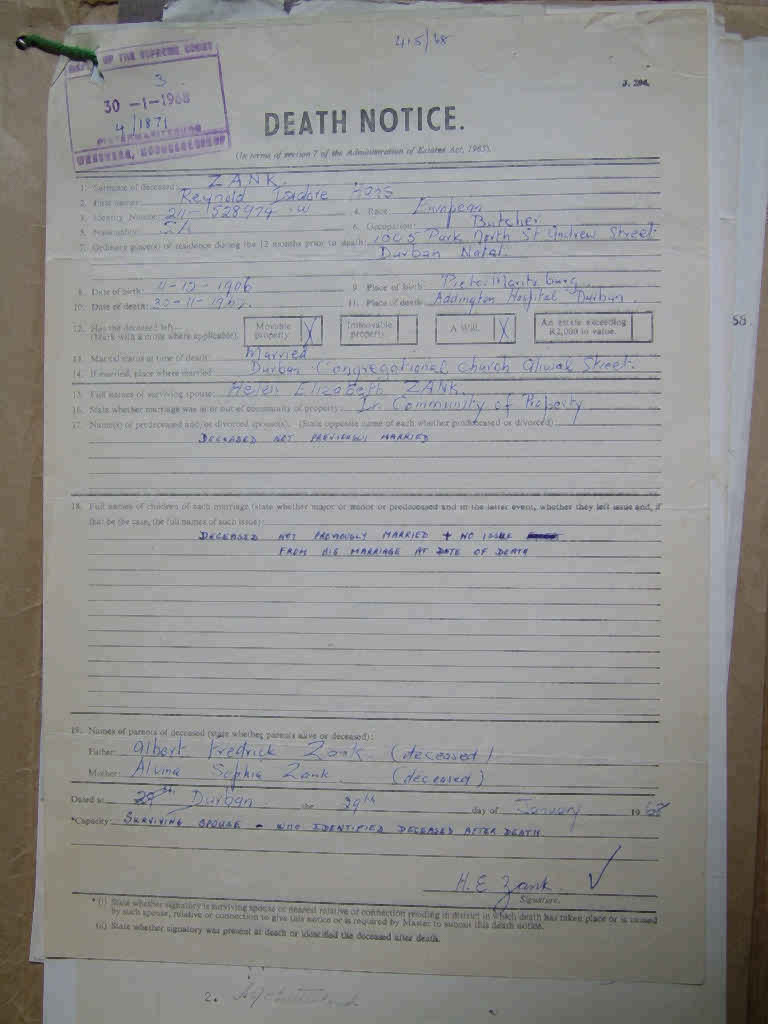 415/68
J. 294.
OF THE SUPREME COURT
3
30 -1- 1968
4/1871
PIETERMARITZBURG
DEATH NOTICE.
(In terms of section 7 of the Administration of Estates Act, 1965).
1. Surname of deceased: ZANK.
2. First names: Reynold Isadore Hans
3. Identity Number: 211- 528974 -W 4. Race: European
5. Nationality: S/A 6. Occupation: Butcher
7. Ordinary place(s) of residence during the 12 months prior to death: Park North St Andrew Street.
Durban Natal.
8. Date of birth: 4-12-1906 9. Place of birth: Pietermaritzburg
10. Date of death: 30-11-1967. 11. Place of death: Addington Hospital Durban.
12. Has the deceased left— Movable property X Immovable property A Will X An estate exceeding
(Mark with a cross where applicable). R2,000 in value.
13. Marital status at time of death: Married
14. If married, place where married: Durban Congregational Church Aliwal Street.
15. Full names of surviving spouse: Helen Elizabeth ZANK.
16. State whether marriage was in or out of community of property: In Community of Property
17. Name(s) of predeceased and/or divorced spouse(s). (State opposite name of each whether predeceased or divorced):
DECEASED NOT PREVIOUSLY MARRIED
18. Full names of children of each marriage (state whether major or minor or predeceased and in the latter event, whether they left issue and, if
that be the case, the full names of such issue):
DECEASED NOT PREVIOUSLY MARRIED + NO ISSUE
FROM HIS MARRIAGE AT DATE OF DEATH
19. Names of parents of deceased (state whether parents alive or deceased):
Father: Albert Fredrick Zank. (deceased)
Mother: Alvina Sophia Zank (deceased)
Dated at 29th Durban the 29th day of January 1968
*Capacity: SURVIVING SPOUSE - WHO IDENTIFIED DECEASED AFTER DEATH
H. E Zank.
Signature.
* (i) State whether signatory is surviving spouse or nearest relative or connection residing in district in which death has taken place or is caused
by such spouse, relative or connection to give this notice or is required by Master to submit this death notice.
(ii) State whether signatory was present at death or identified the deceased after death.
2.
58.